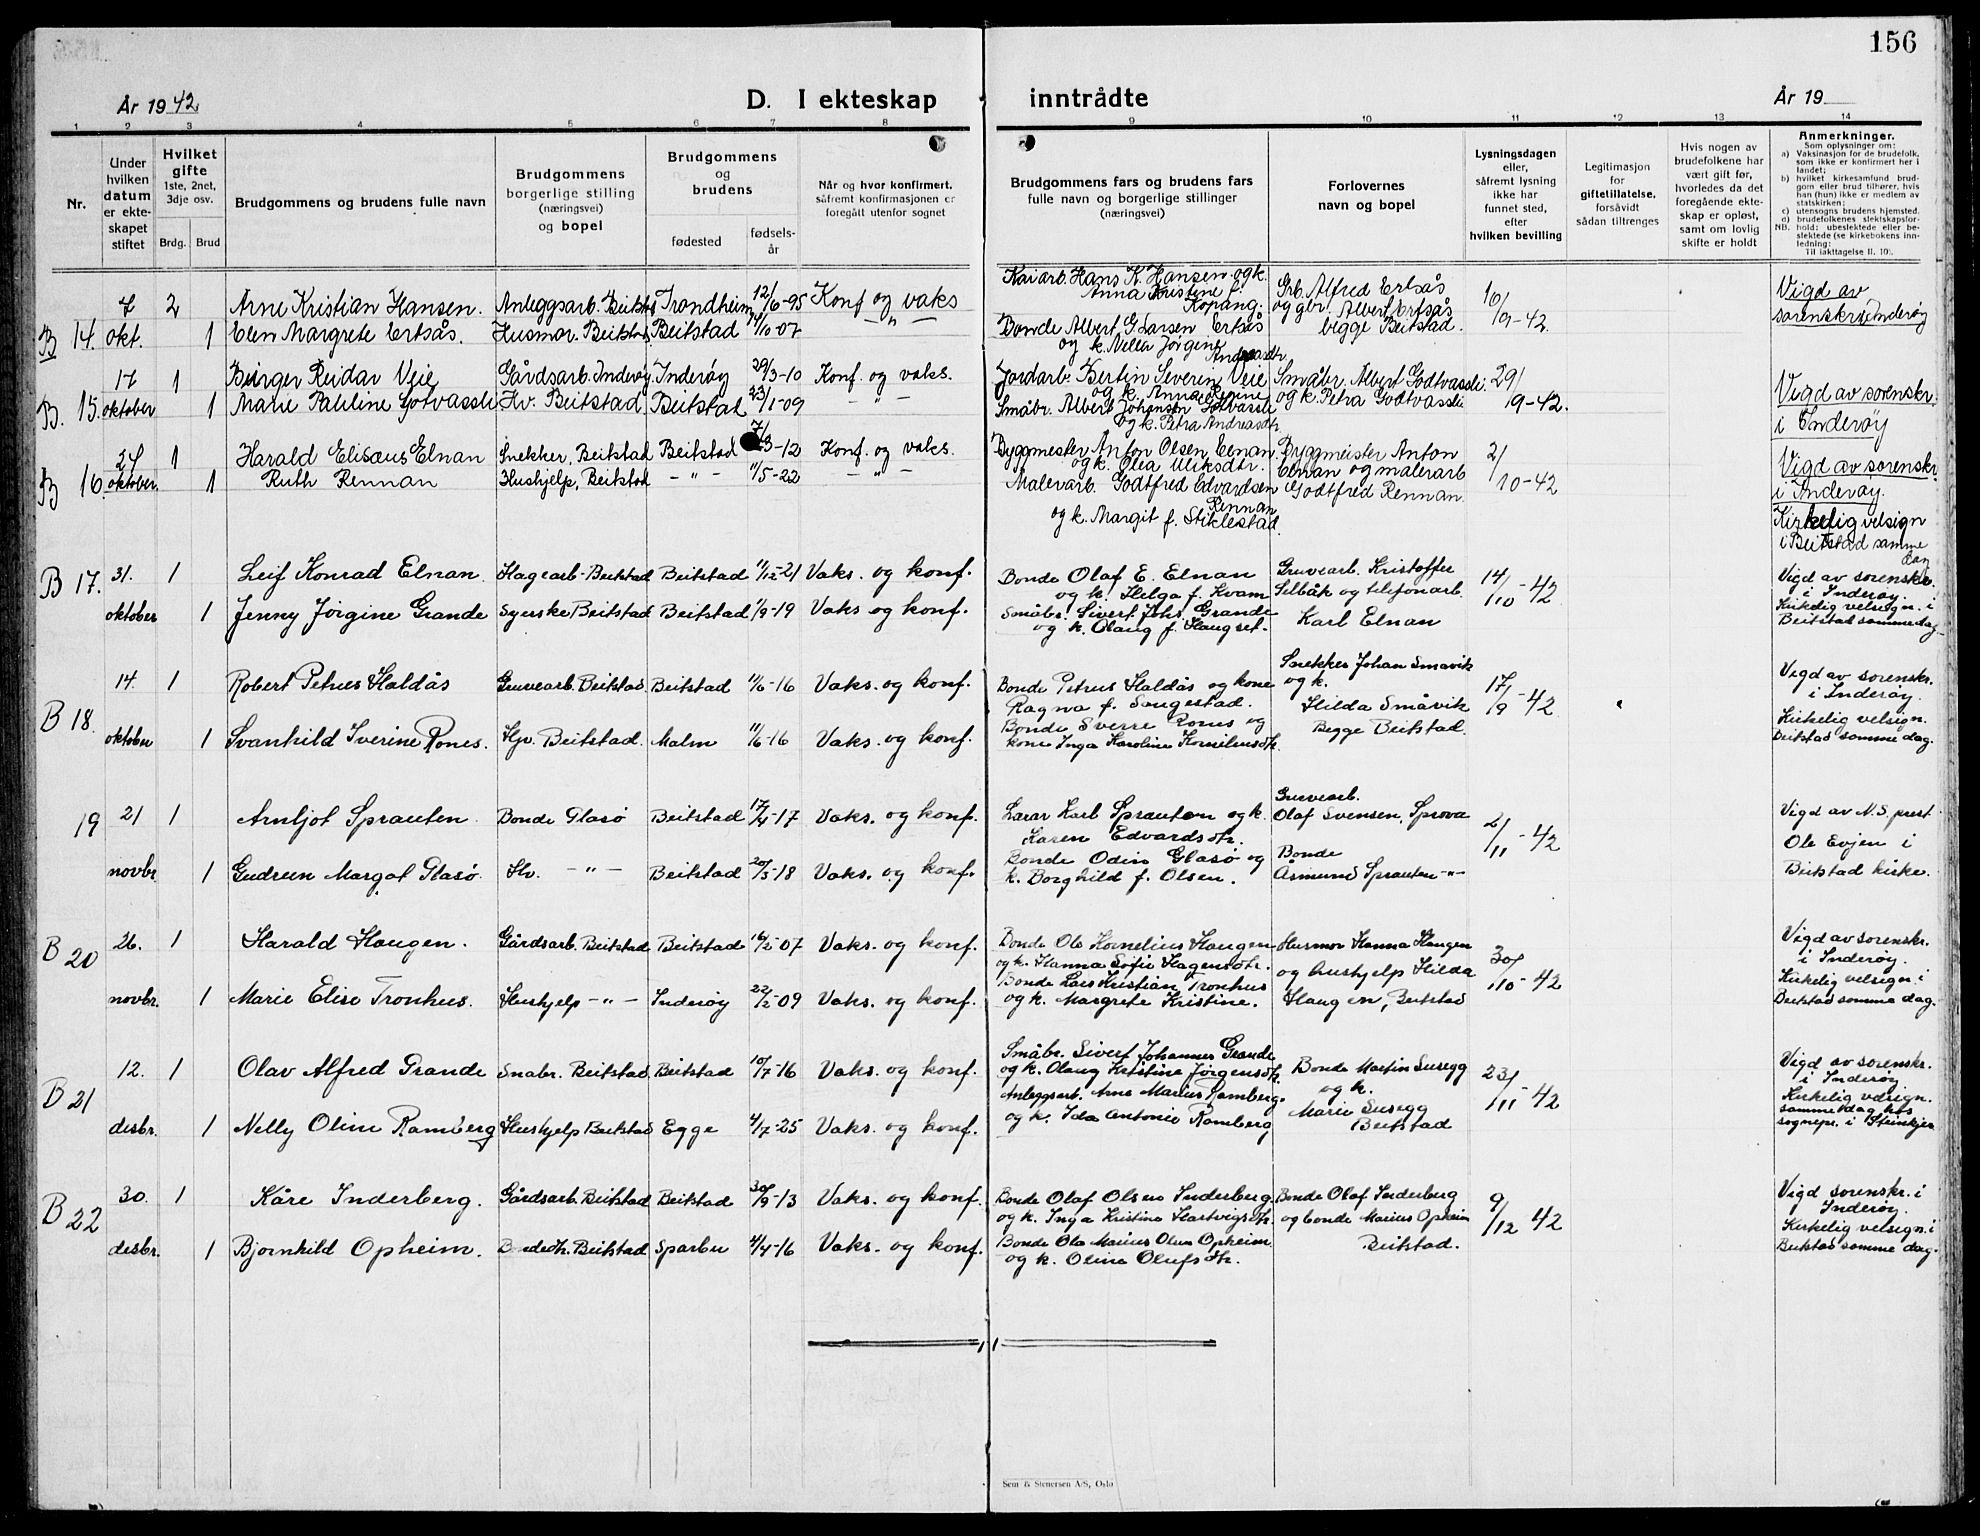 156
År 1942
D. I ekteskap inntrådte
År 19
1 2 3 4 5 6 7 8 9 10 11 12 13 14
Nr.
Under hvilken datum er ekteskapet stiftet
Hvilket gifte
1ste, 2net, 3dje osv.
Brdg. Brud
Brudgommens og brudens fulle navn
Brudgommens borgerlige stilling (næringsvei) og bopel
Brudgommens og brudens
fødested
fødselsår
Når og hvor konfirmert, såfremt konfirmasjonen er foregått utenfor sognet
Brudgommens fars og brudens fars fulle navn og borgerlige stillinger (næringsvei)
Forlovernes navn og bopel
Lysningsdagen eller, såfremt lysning ikke har funnet sted, efter hvilken bevilling
Legitimasjon for giftetillatelse, forsåvidt sådan tiltrenges
Hvis nogen av brudefolkene har vært gift før, hvorledes da det foregående ekteskap er opløst, samt om lovlig skifte er holdt
Anmerkninger.
Som oplysninger om:
a) Vaksinasjon for de brudefolk, som ikke er konfirmert her i landet;
b) hvilket kirkesamfund brudgom eller brud tilhører, hvis han (hun) ikke er medlem av statskirken;
c) utensogns brudens hjemsted.
d) brudefolkenes slektskapsforhold: ubeslektede eller beslektede (se kirkebokens innledning:
NB. Til iakttagelse II. 10).
B 14. 7 okt. 2 Arne Kristian Hansen. Anleggsarb. Beitstad Trondheim 12/6-95 Konf og vaks
1 Elen Margrete Ertsås. Husmor. Beitstad Beitstad 11/10-07 — " —
Kaiarb. Hans K. Hansen og k.
Anna Kristine f. Kopang.
Bonde Albert G Larsen Ertsås
og k. Nella Jørgine Andreasdtr.
Grb. Alfred Ertsås
og gbr. Albert Ertsås
begge Beitstad.
16/9-42.
Vigd av
sorenskr. Inderøy
B. 15. 17 oktober 1 Birger Reidar Veie Gårdsarb. Inderøy. Inderøy 29/3-10 Konf. og vaks.
1 Marie Pauline Gotvassli Hv. Beitstad Beitstad 23/1-09 — " —
Jordarb. Bertin Severin Veie
og k. Anna
Småbr. Albert Johansen Gotvassli
og k. Petra Andreasdtr.
Småbr. Albert Godtvassli
og k. Petra Godtvassli
29/9-42.
Vigd av sorenskr.
i Inderøy
B 16. 24 oktober. 1 Harald Elisæus Elnan Snekker, Beitstad Beitstad 7/3-12 Konf. og vaks.
1 Ruth Rennan Hushjelp, Beitstad — " — 11/5-22 — " —
Byggmester Anton Olsen Elnan
og k. Olea Ulriksdtr.
Malerarb. Godtfred Edvardsen Rennan
og k. Margit f. Stiklestad.
Byggmeister Anton
Elnan og malerarb
Godtfred Rennan.
2/10-42
Vigd av sorenskr
i Inderøy.
Kirkelig velsign
i Beitstad samme dag
B 17. 31. oktober 1 Leif Konrad Elnan. Hagearb. Beitstad Beitstad 1/12-21 Vaks. og konf.
1 Jenny Jørgine Grande Syerske Beitstad Beitstad 1/9-19 Vaks og konf.
Bonde Olaf E. Elnan
og k. Helga f. Kvam
Småbr. Sivert Johs. Grande
og k. Olaug f. Haugset.
Gruvearb. Kristoffer
Selbåk og telefonarb.
Karl Elnan
14/10-42
Vigd av sorenskr.
i Inderøy.
Kirkelig velsign. i
Beitstad sammedag.
B 18. 14. oktober 1 Robert Petrus Haldås Gruvearb. Beitstad. Beitstad 11/6-16 Vaks. og konf.
1 Svanhild Iverine Rones. Hjv. Beitstad. Malm 11/6-16 Vaks. og konf.
Bonde Petrus Haldås og kone
Ragna f. Saugestad.
Bonde Sverre Rones og
kone Inga Karoline Korneliusdtr.
Snekker Johan Småvik
og k.
Hilda Småvik
Begge Beitstad.
17/9-42
Vigd av sorenskr.
i Inderøy.
Kirkelig velsign.
Beitstad samme dag.
19 21 novbr. 1 Arnljot Sprauten Bonde Glasø Beitstad 17/4-17 Vaks. og konf.
1 Gudrun Margot Glasø. Hv. — " — Beitstad 20/5-18 Vaks. og konf.
Lærar Karl Sprauten og k.
Karen Edvardsdtr.
Bonde Odin Glasø og
k. Borghild f. Olsen.
Gruvearb.
Olaf Svensen, Sprova
Bonde
Åsmund Sprauten - " -
2/11-42
Vigd av N.S. prest
Ole Evjen i
Beitstad kirke.
B 20 26. novbr. 1 Harald Haugen. Gårdsarb. Beitstad Beitstad 16/5-07 Vaks. og konf.
1 Marie Elise Tronhus. Hushjelp — " — Inderøy 22/2-09 Vaks. og konf.
Bonde Ole Kornelius Haugen
og k. Hanna Sofie Hagensdtr.
Bonde Lars Kristian Tronhus
og k. Margrete Kristine.
Husmor Hanna Haugen
og hushjelp Hilda
Haugen, Beitstad
30/10-42
Vigd av sorenskr.
i Inderøy.
Kirkelig velsign. i
Beitstad samme dag.
B 21 12. desbr. 1 Olav Alfred Grande Småbr. Beitstad. Beitstad 10/7-16 Vaks. og konf.
1 Nelly Oline Ramberg Hushjelp Beitstad Egge 4/7-25 Vaks. og konf.
Småbr. Sivert Johannes Grande
og k. Olaug Kristine Jørgensdtr.
Anleggsarb. Arne Marius Ramberg.
og k. Ida Antonie Ramberg
Bonde Martin Susegg
og k.
Marie Susegg
Beitstad
23/11-42
Vigd av sorenskr.
i Inderøy
Kirkelig velsign.
samme dag hos
sognepr. i Steinkjer
B 22 30. desbr. 1 Kåre Inderberg. Gårdsarb. Beitstad Beitstad 30/9-13 Vaks. og konf.
1 Bjørnhild Opheim. Bondedtr. Beitstad Sparbu 4/4-16 Vaks. og konf.
Bonde Olaf Olsen Inderberg
og k. Inga Kristine Hartvigsdtr.
Bonde Ole Marius Olsen Opheim
og k. Oline Olufsdtr.
Bonde Olaf Inderberg
og bonde Marius Opheim
Beitstad.
9/12 42
Vigd sorenskr. i
Inderøy.
Kirkelig velsign. i
Beitstad samme dag.
Sem & Stenersen A/S, Oslo